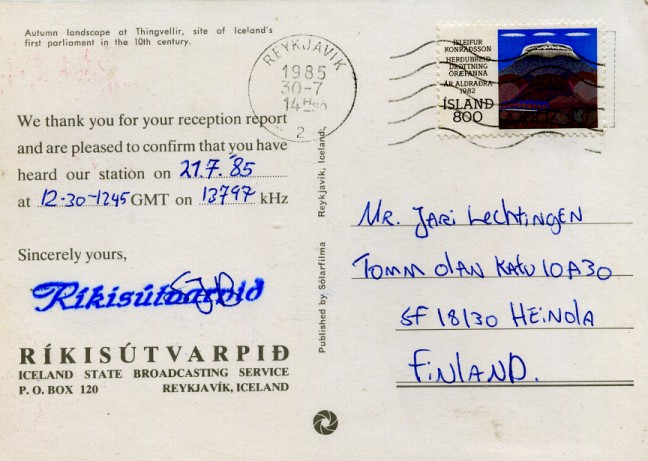 Autumn landscape at Thingvellir, site of Iceland's
first parliament in the 10th century.
REYKJAVIK
1985
30-7
14
2
ÍSLEIFUR
KONRÁÐSSON
HERÐUBREIÐ
DROTTNING
ÖRÆFANNA
ÁR ALDRAÐRA
1982
ÍSLAND
800
We thank you for your reception report
and are pleased to confirm that you have
heard our station on 21.7.'85
at 12-30-1245 GMT on 13797 kHz
Sincerely yours,
Ríkisútvarpið
RÍKISÚTVARPIÐ
ICELAND STATE BROADCASTING SERVICE
P. O. BOX 120 REYKJAVÍK, ICELAND
Published by Sólarfilma Reykjavik, Iceland.
Mr. Jari Lechtingen
Tommolan Katu 10A30
SF 18130 HEINOLA
FINLAND.